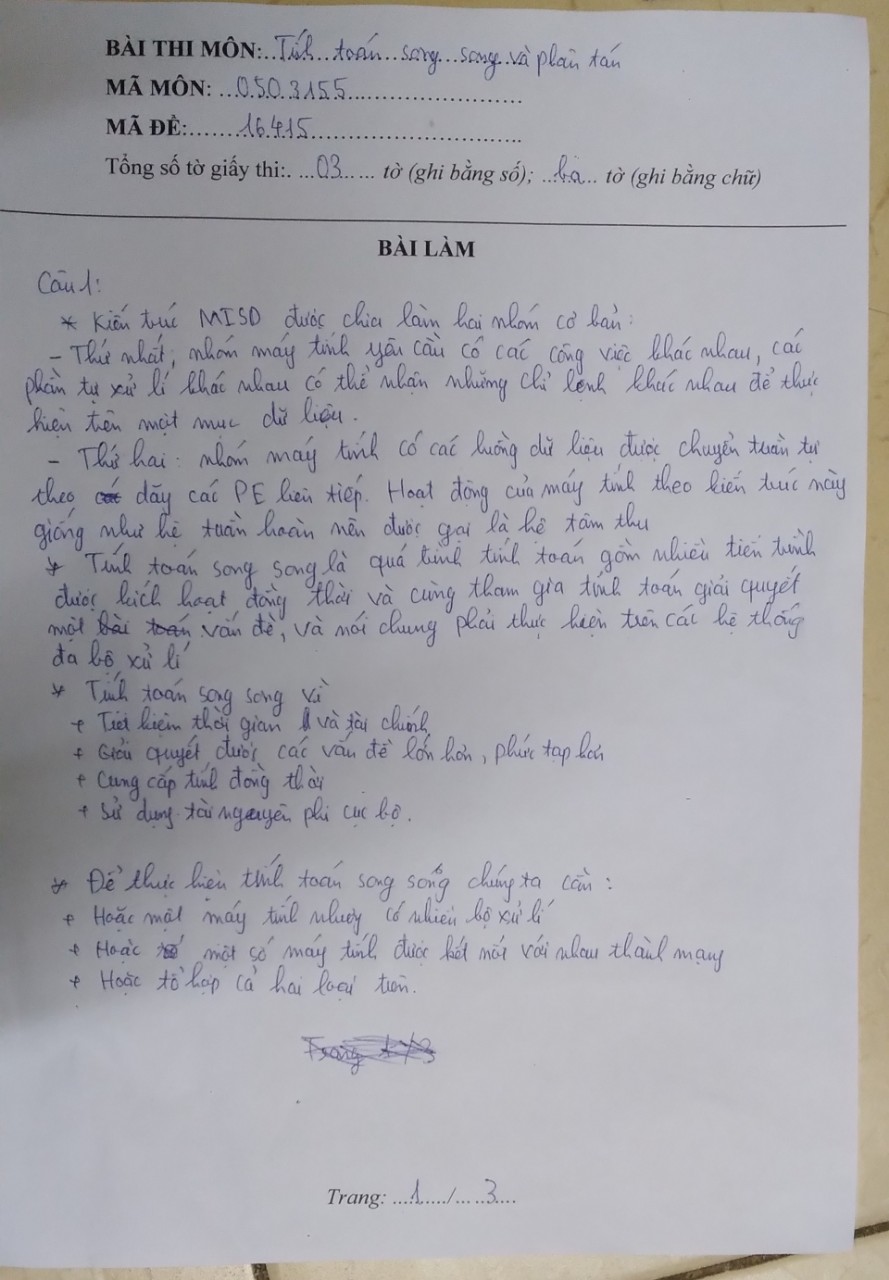 BÀI THI MÔN:..Tính..toán...song...song..và phân tán
MÃ MÔN: ...0503155........................
MÃ ĐỀ:.......16.415...............................
Tổng số tờ giấy thi:. ...03... ... tờ (ghi bằng số); ...ba... tờ (ghi bằng chữ)
BÀI LÀM
Câu 1:
* Kiến trúc MISD được chia làm hai nhóm cơ bản:
- Thứ nhất, nhóm máy tính yêu cầu có các công việc khác nhau, các
phần tự xử lí khác nhau có thể nhận những chỉ lệnh khác nhau để thực
hiện trên một mục dữ liệu.
- Thứ hai: nhóm máy tính có các luồng dữ liệu được chuyển tuần tự
theo các dãy các PE liên tiếp. Hoạt động của máy tính theo kiến trúc này
giống như hệ tuần hoàn nên được gọi là hệ tâm thu
* Tính toán song song là quá trình tính toán gồm nhiều tiến trình
được kích hoạt đồng thời và cùng tham gia tính toán giải quyết
một bài toán vấn đề, và nói chung phải thực hiện trên các hệ thống
đa bộ xử lí
* Tính toán song song vì
+ Tiết kiệm thời gian và tài chính
+ Giải quyết được các vấn đề lớn hơn, phức tạp hơn
+ Cung cấp tính đồng thời
+ Sử dụng tài nguyên phi cục bộ.
* Để thực hiện tính toán song sống chúng ta cần:
+ Hoặc một máy tính nhưng có nhiều bộ xử lí
+ Hoặc một số máy tính được kết nối với nhau thành mạng
+ Hoặc tổ hợp cả hai loại trên.
Trang 1/3
Trang: ...1..../... ..3....